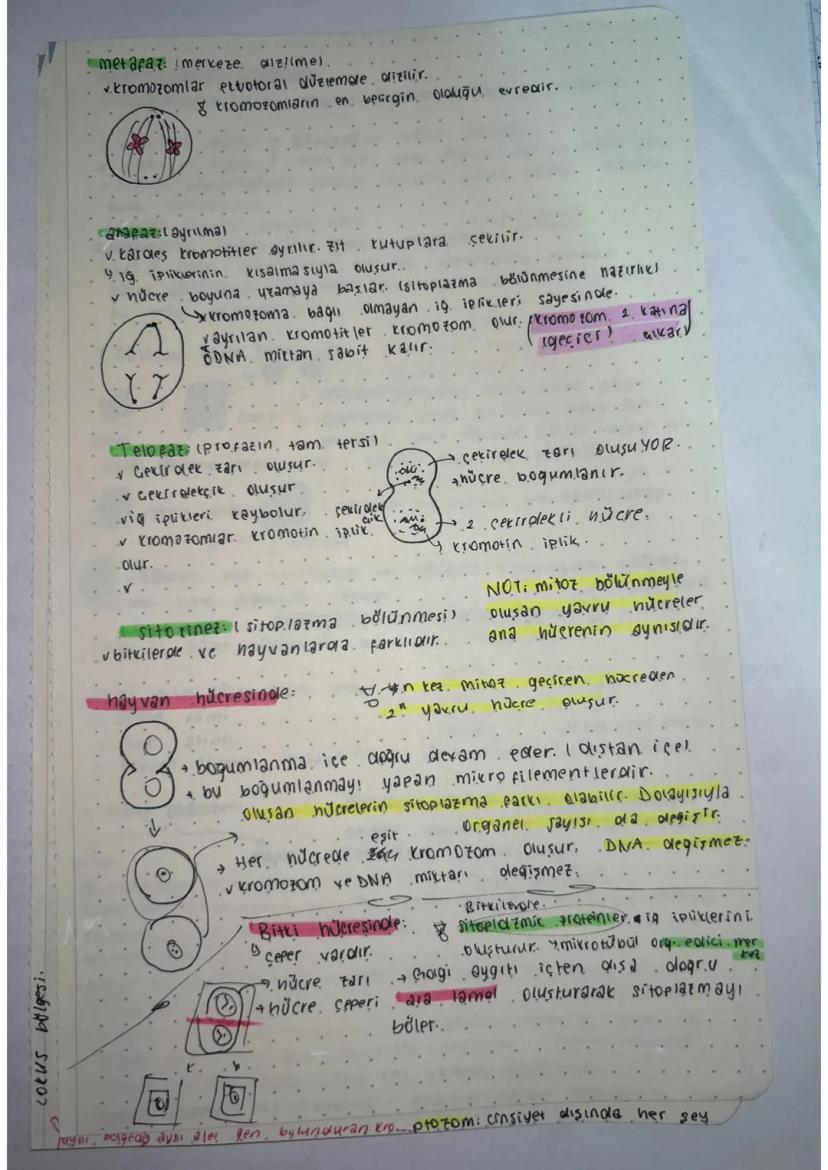 metafaz: (merkeze dizilme).
✓kromozomlar ekvatoral düzlemde dizilir.
kromozomların en belirgin olduğu evredir.
anafaz: (ayrılma)
✓kardeş kromotitler ayrılır. zıt kutuplara çekilir.
✓iğ ipliklerinin kısalmasıyla oluşur.
✓ hücre boyuna uzamaya başlar. (sitoplazma bölünmesine hazırlık)
kromozoma bağlı olmayan iğ iplikleri sayesinde.
ayrılan kromotitler kromozom olur. (kromozom 2 katına
DNA miktarı sabit kalır. (geçici) çıkar)
Telofaz: (profazın tam tersi)
✓ Çekirdek zarı oluşur.
→ çekirdek zarı oluşuYOR.
✓ çekirdekçik oluşur.
→hücre boğumlanır.
✓iğ iplikleri kaybolur. çekirdekçik
→ 2 çekirdekli hücre.
✓ kromozomlar kromotin iplik
kromotin iplik.
olur.
✓
NOT: mitoz bölünmeyle
oluşan yavru hücreler
ana hücrenin aynısıdır.
sitokinez: (sitoplazma bölünmesi)
✓bitkilerde ve hayvanlarda farklıdır.
hayvan hücresinde:
n kez mitoz geçiren hücreden
2ⁿ yavru hücre oluşur.
→ boğumlanma içe doğru devam eder. (dıştan içe)
→ bu boğumlanmayı yapan mikrofilementlerdir.
oluşan hücrelerin sitoplazma farkı olabilir. Dolayısıyla
organel sayısı da değişir.
eşit
→ Her hücrede kromozom oluşur, DNA değişmez.
✓ kromozom ve DNA miktarı değişmez.
Bitkilerde
Bitki hücresinde: sitoplazmik proteinler iğ ipliklerini
çeper vardır. oluşturur. mikrotübül org. edici merkez
→ hücre zarı → golgi aygıtı içten dışa doğru
→hücre çeperi ara lamel oluşturarak sitoplazmayı
böler.
Lokus bölgesi.
otozom: cinsiyet dışında her şey